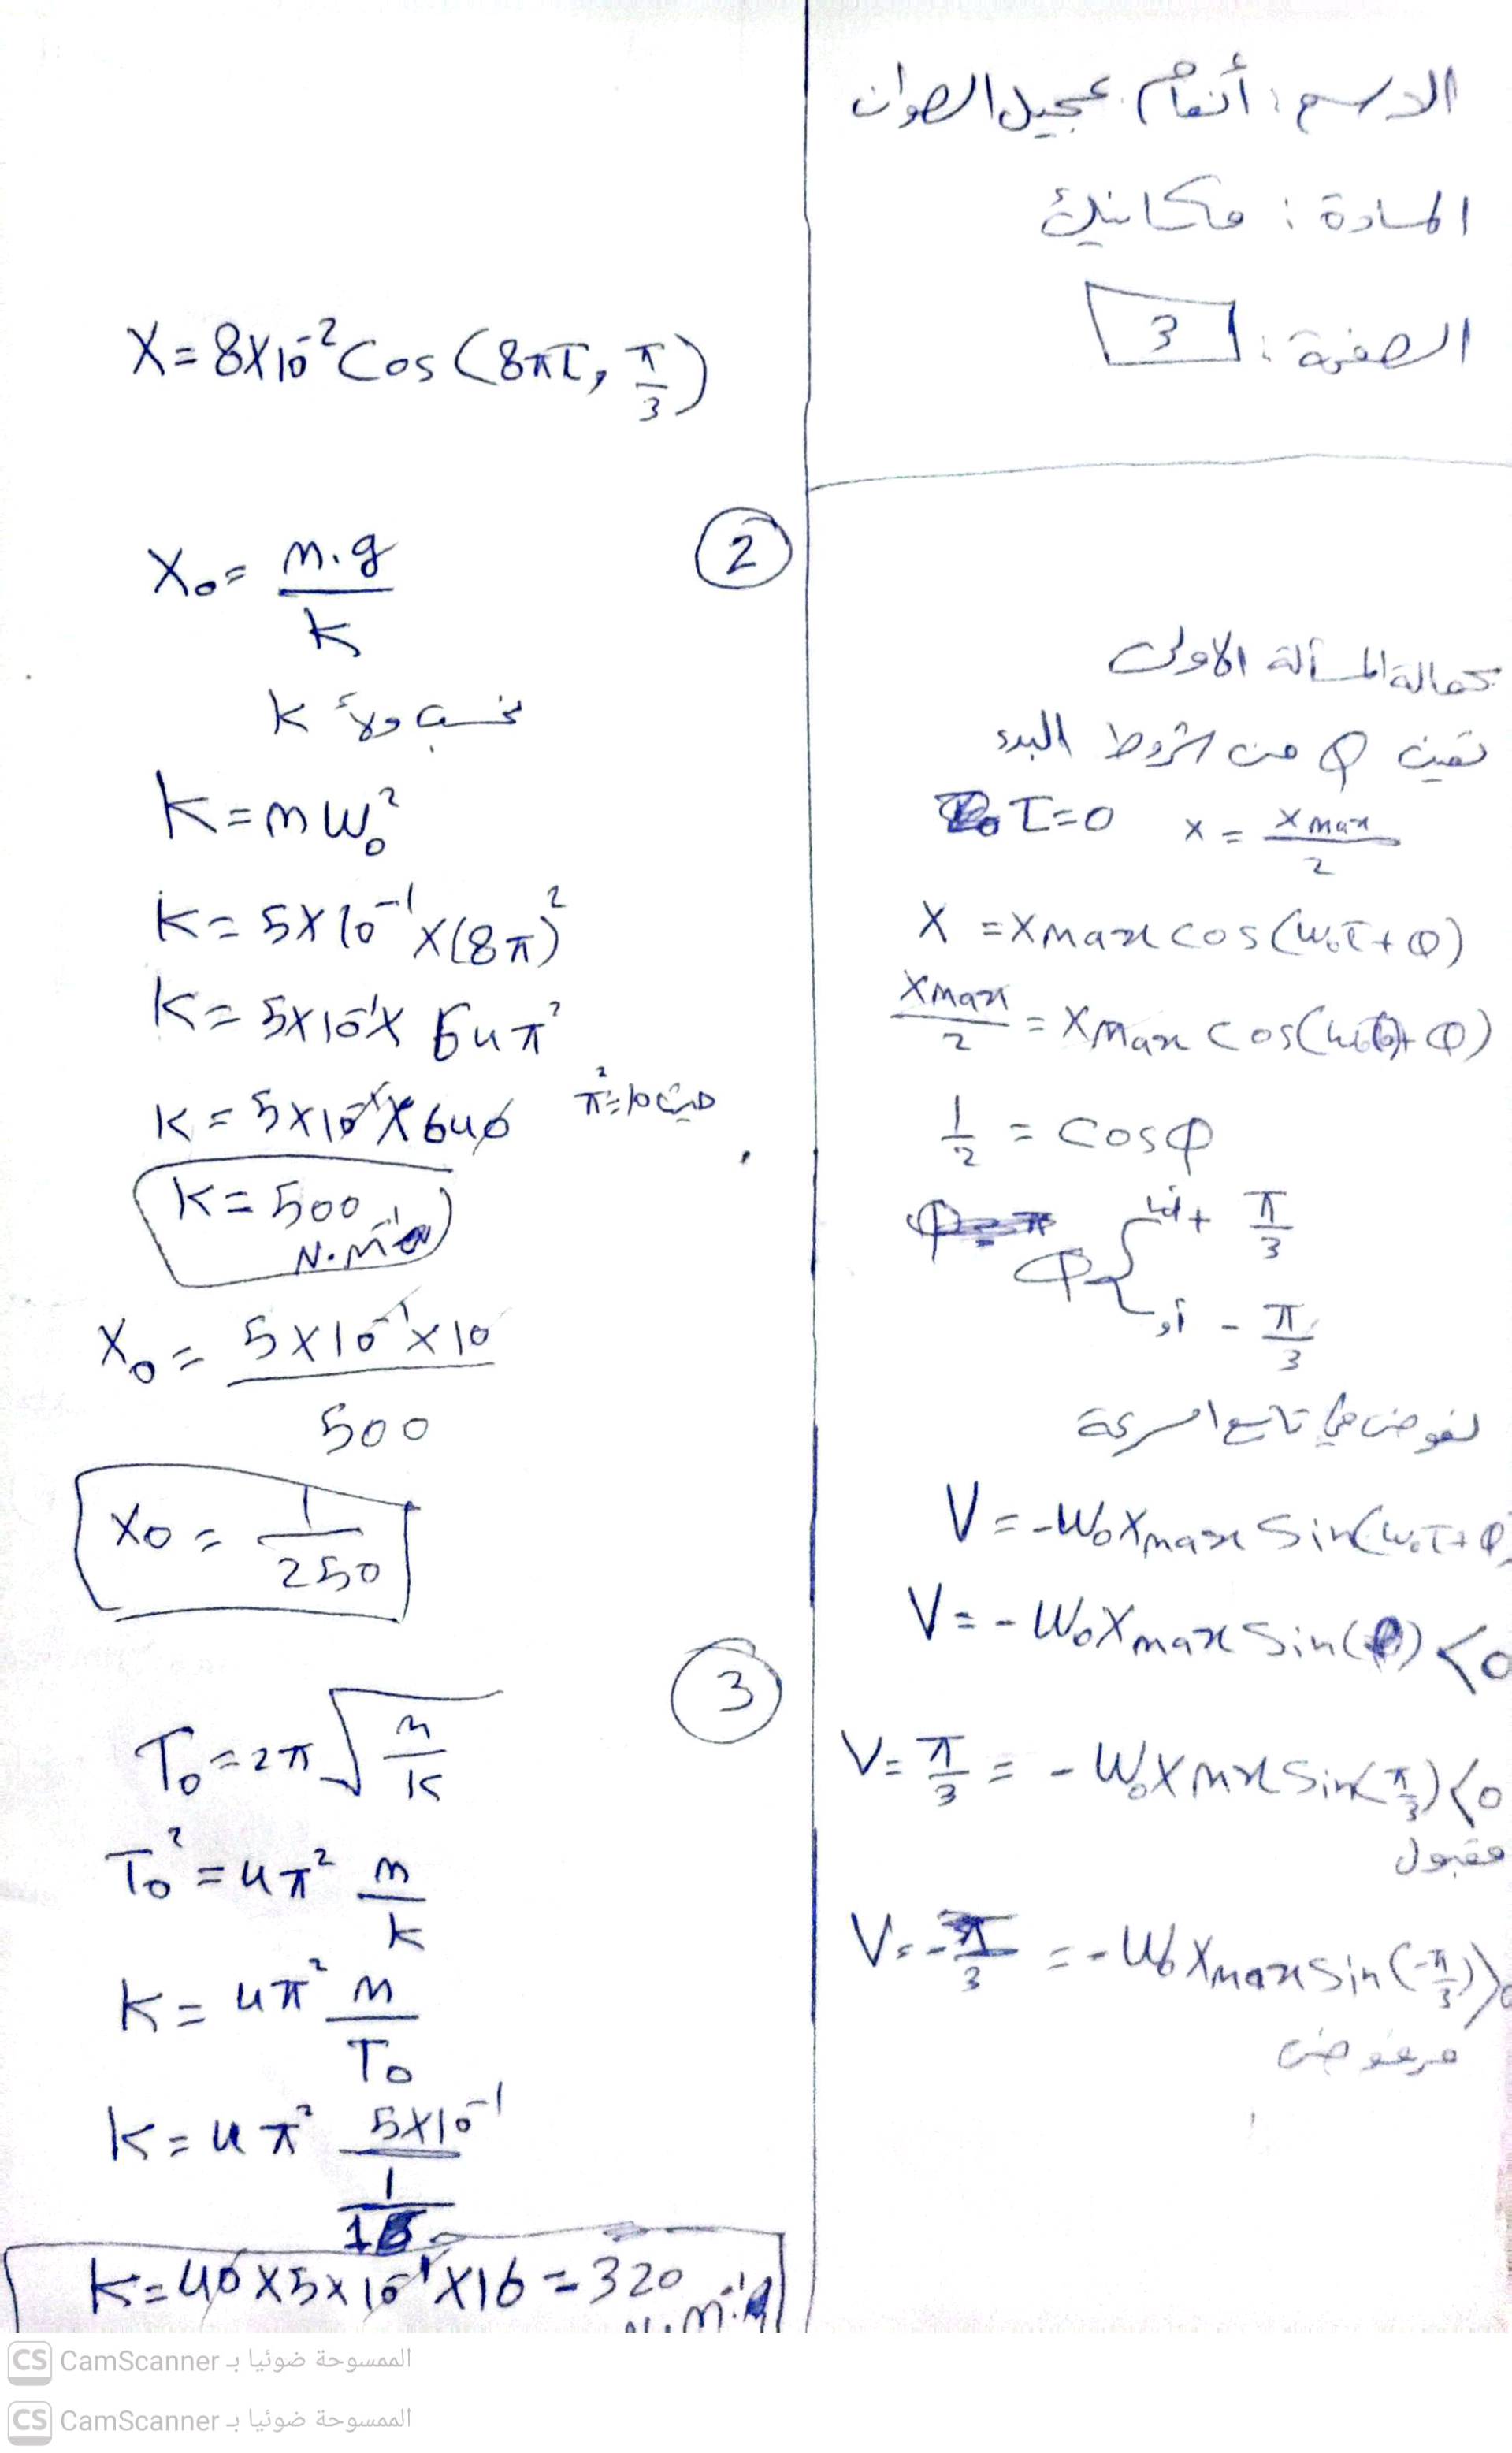 الاسم: أنعام عجيل الصوان
المادة: مكانيك
الصفحة: 3
تعين φ من شروط البدء
T=0 x = Xmax/2
X = Xmax cos(W₀T+φ)
Xmax/2 = Xmax cos(W₀(0)+φ)
1/2 = cosφ
φ إما + π/3
أو - π/3
نعوض في تابع السرعة
V = -W₀Xmax sin(W₀T+φ)
V = -W₀Xmax sin(φ) <0
V= π/3 = - W₀Xmax sin(π/3) <0
مقبول
V= -π/3 = -W₀Xmax sin(-π/3) >0
مرفوض
X = 8×10⁻² cos (8πT, π/3)
2
X₀ = m.g/k
نحسب ولاً k
K = mW₀²
K = 5×10⁻¹×(8π)²
K = 5×10⁻¹× 64π²
K = 5×10⁻¹×640 حيث π²=10
K = 500
N.m⁻¹
X₀ = 5×10⁻¹×10/500
X₀ = 1/250
3
T₀ = 2π√(m/k)
T₀² = 4π² m/k
K = 4π² m/T₀
K = 4π² 5×10⁻¹/(1/16)
K = 40×5×10⁻¹×16 = 320
N.m⁻¹
CS CamScanner الممسوحة ضوئيا بـ
CS CamScanner الممسوحة ضوئيا بـ